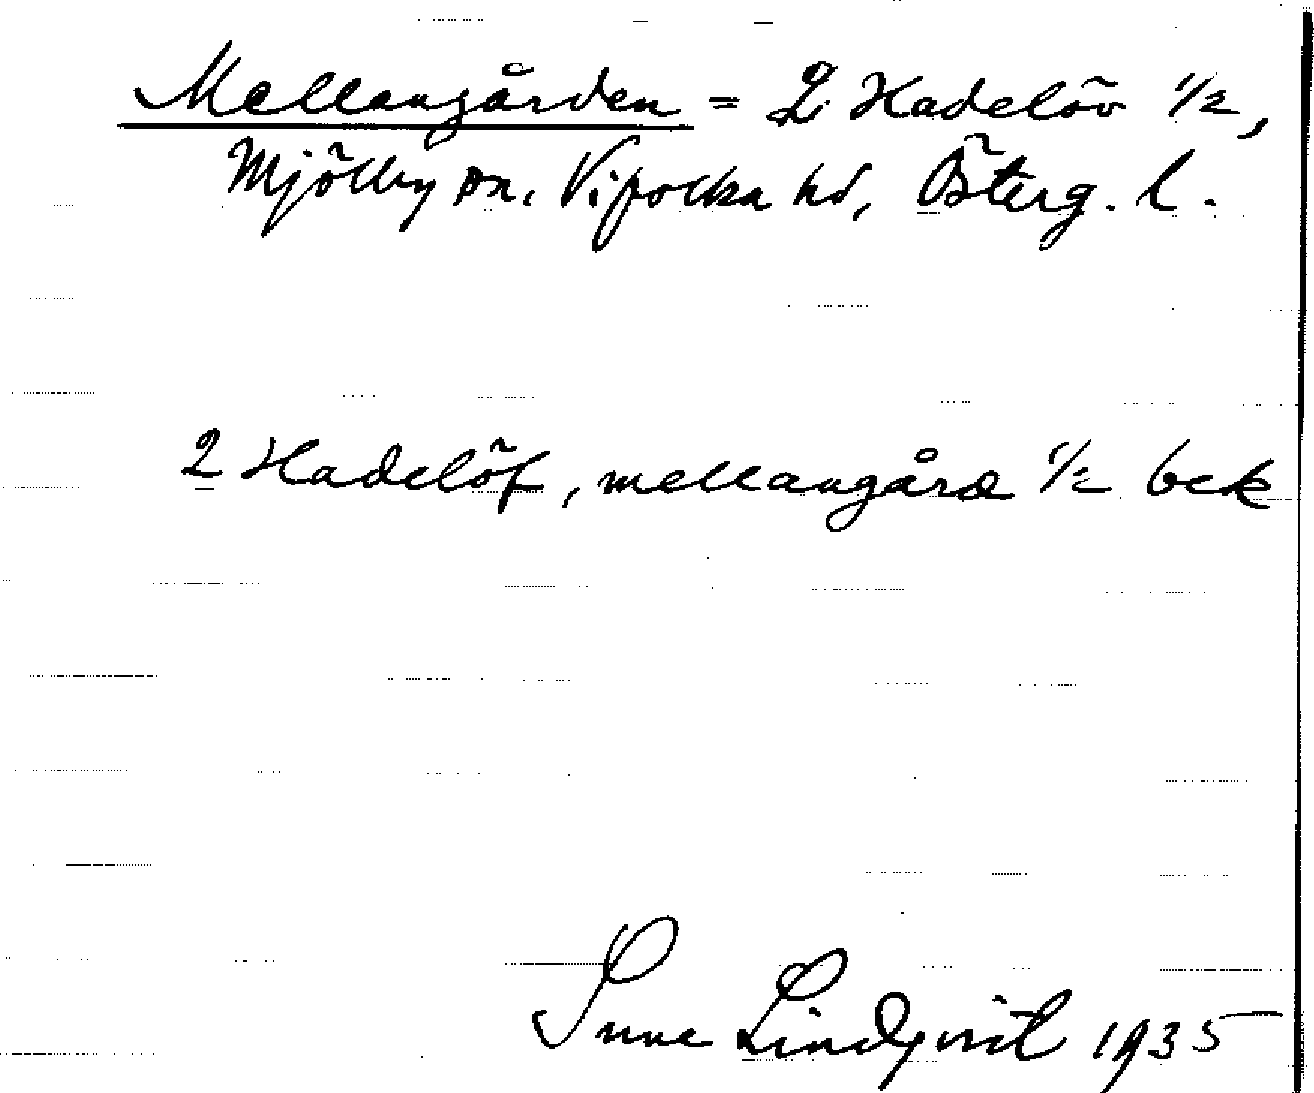 Mellangården = 2 Hadelöv 1/2,
Mjölby sn, Vifolka hd, Österg. l.
2 Hadelöf, mellangård 1/2 bek
Sune Lindqvist 1935